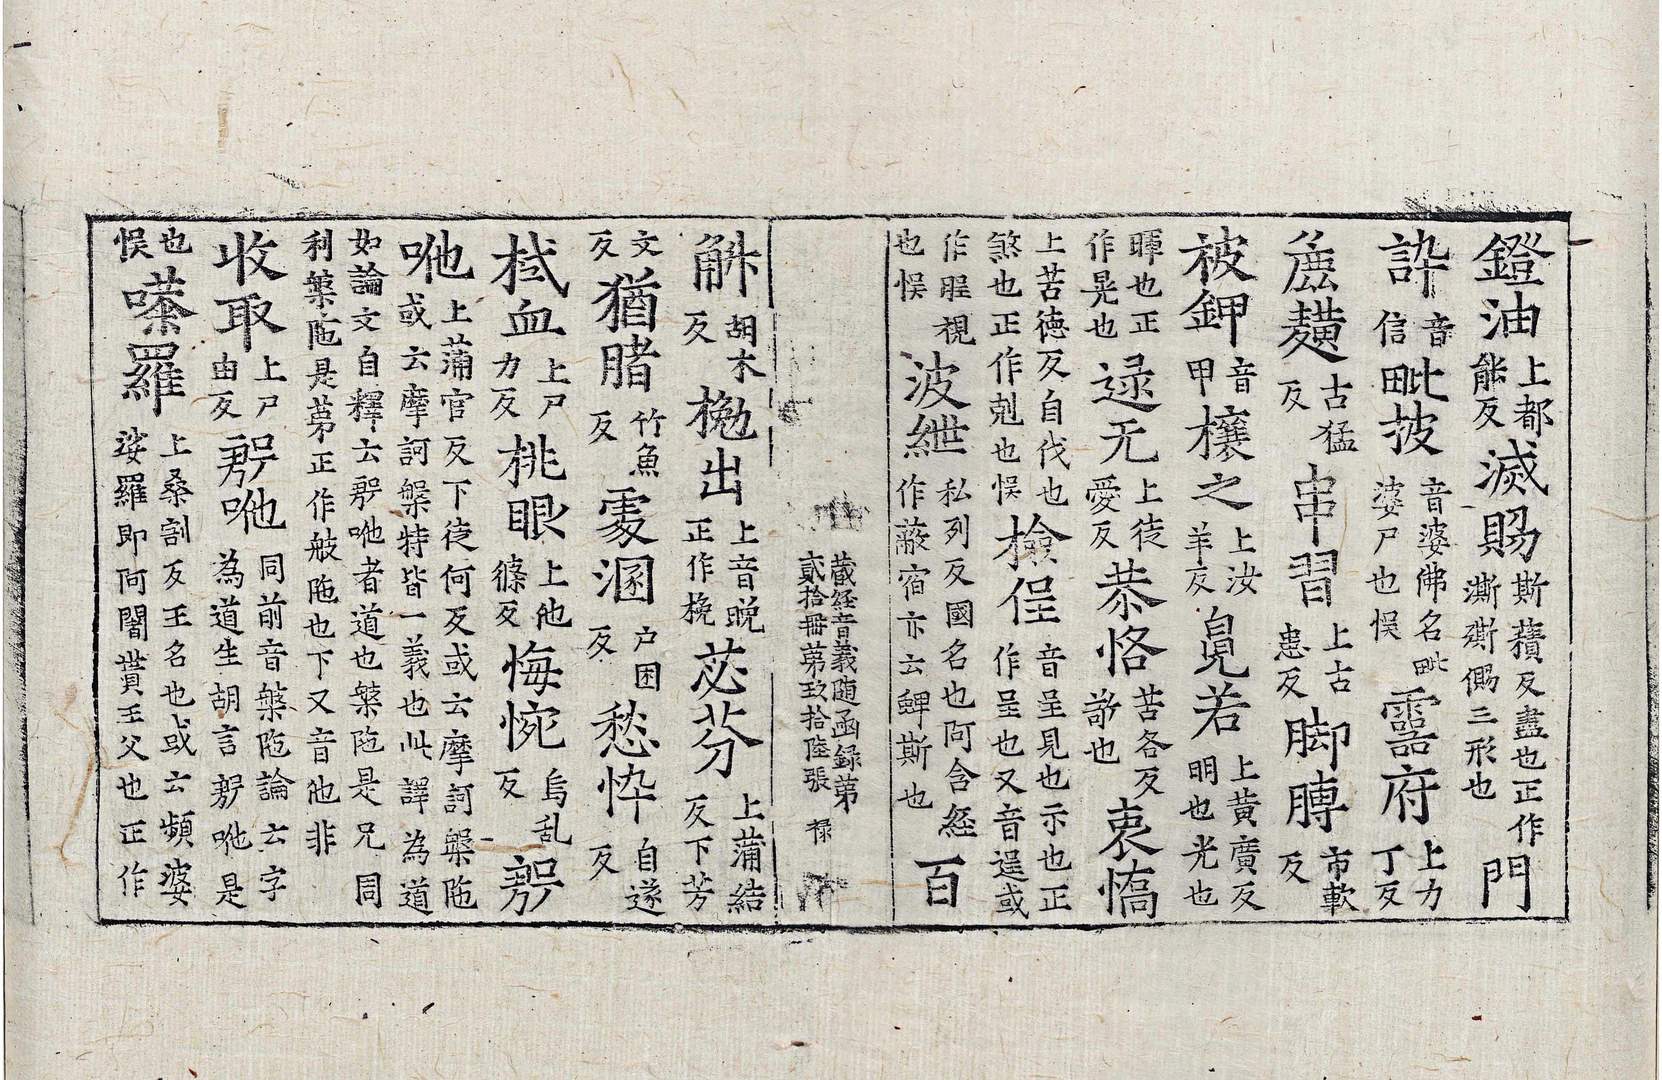 鐙油上都能反滅賜斯蕕反盡也正作澌㒋儩三形也門
誶音信毗披音婆佛名毗婆尸也悮靈府上力丁反
麁䵃古猛反串習上古患反脚膞市軟反
被鉀音甲欀之上汝羊反皃若上黃廣反明也光也
暉也正作晃也逯无上徒愛反恭恪苦各反謌也衷憍
上苦德反自伐也煞也正作剋也悮撿侱音呈見也示也正作呈也又音逞或
作睲視也悮波紲私列反國名也阿含經作蔽宿亦云鞞斯也百
藏經音義随函録第貳拾冊第玖拾陸張 禄
斛胡木反㮯出上音晚正作挽苾芬上蒲結反下芳
文反猶䐗竹魚反䨱溷户困反愁忰自遂反
栻血上尸力反桃眼上他絛反悔惋烏乱反䫂
呭上蒲官反下徒何反或云摩訶槃陁或云摩訶槃特皆一義也此譯為道
如論文自釋云䫂呭者道也槃陁是兄同
利槃陁是苐正作舷陁也下又音他非
收取上尸由反䫂呭同前音槃陁論云字為道生胡言䫂呭是
也悮嗏羅上桑割反王名也或云頻婆娑羅即阿闍貰王父也正作